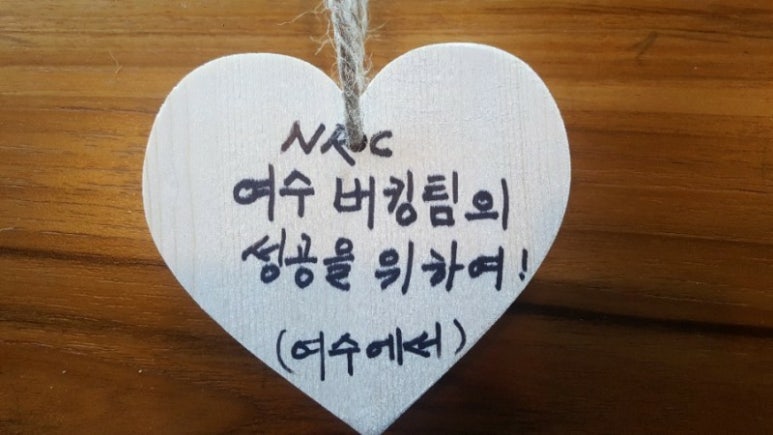 NRC
여수 버킹팀의
성공을 위하여!
(여수에서)